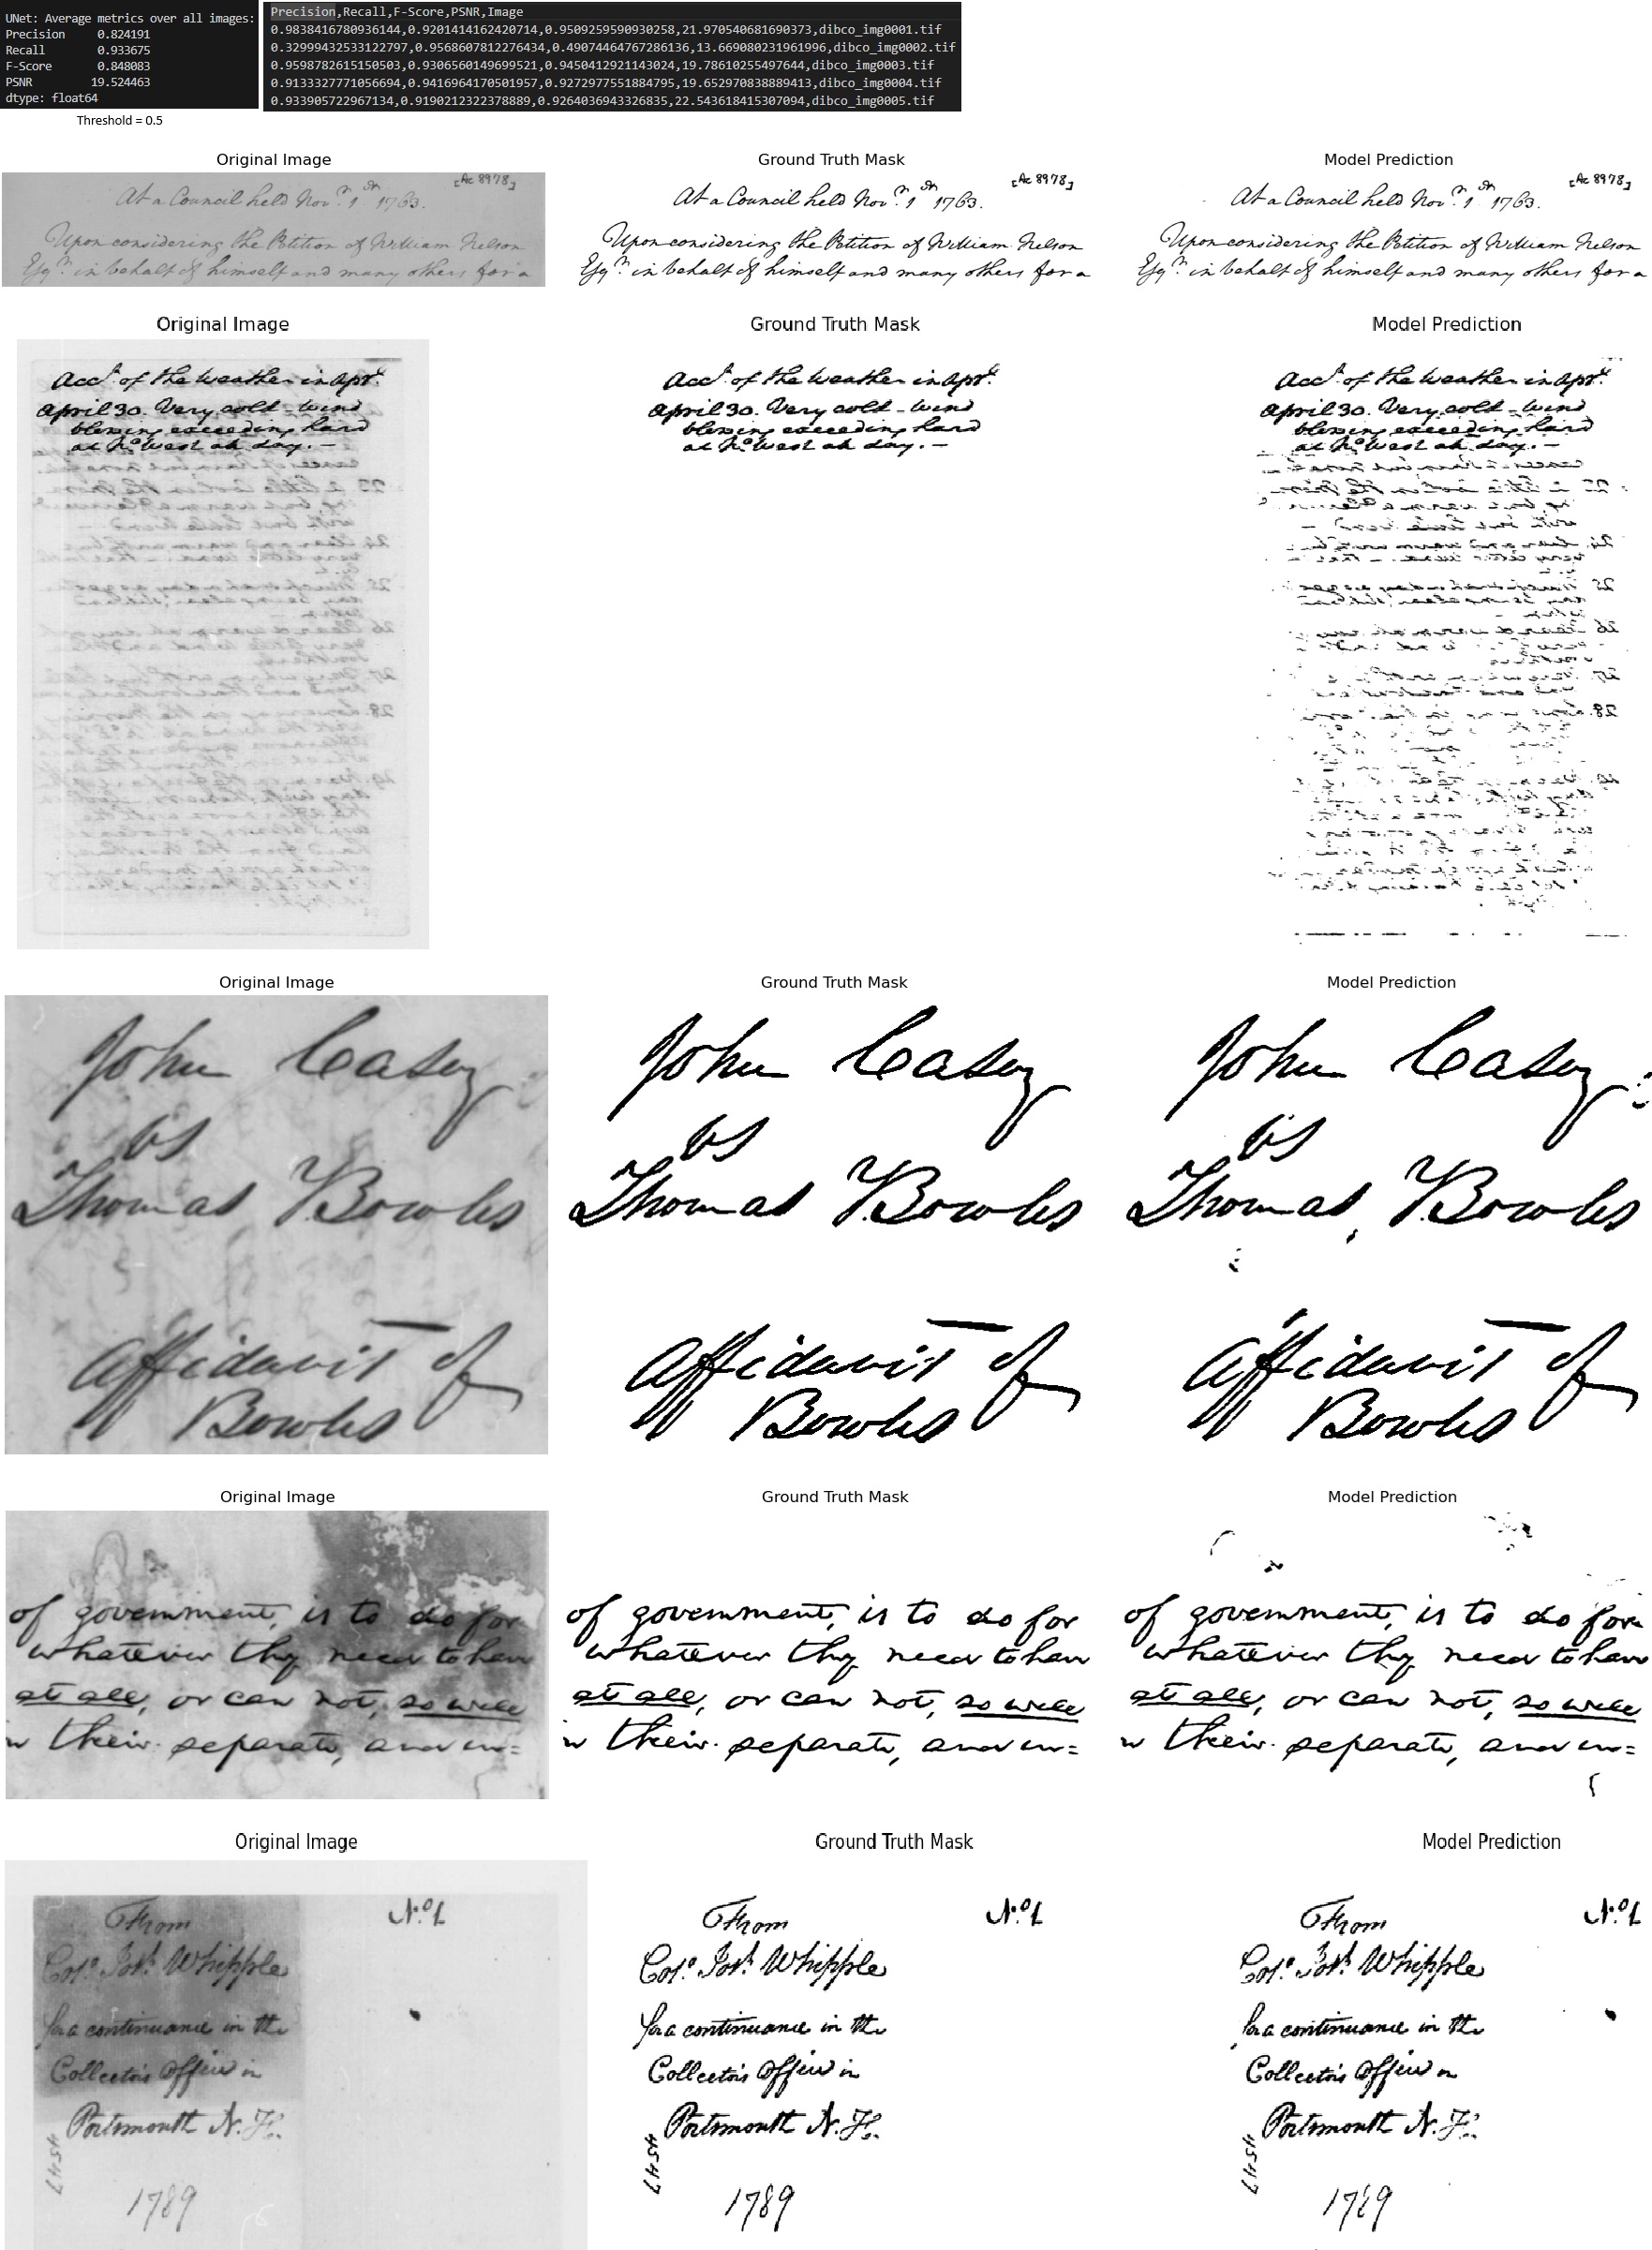 UNet: Average metrics over all images:
Precision 0.824191
Recall 0.933675
F-Score 0.848083
PSNR 19.524463
dtype: float64
Threshold = 0.5
Precision,Recall,F-Score,PSNR,Image
0.9838416780936144,0.9201414162420714,0.9509259590930258,21.970540681690373,dibco_img0001.tif
0.32999432533122797,0.9568607812276434,0.49074464767286136,13.669080231961996,dibco_img0002.tif
0.9598782615150503,0.9306560149699521,0.9450412921143024,19.78610255497644,dibco_img0003.tif
0.9133327771056694,0.9416964170501957,0.9272977551884795,19.652970838889413,dibco_img0004.tif
0.933905722967134,0.9190212322378889,0.9264036943326835,22.543618415307094,dibco_img0005.tif
Original Image
[Ac 8978]
At a Council held Novr. 1st 1763.
Upon considering the Petition of William Nelson
Esqr. in behalf of himself and many others for a
Ground Truth Mask
[Ac 8978]
At a Council held Novr. 1st 1763.
Upon considering the Petition of William Nelson
Esqr. in behalf of himself and many others for a
Model Prediction
[Ac 8978]
At a Council held Novr. 1st 1763.
Upon considering the Petition of William Nelson
Esqr. in behalf of himself and many others for a
Original Image
Acct. of the Weather in Aprl.
April 30. Very cold - Wind
blowing exceeding hard
at No. West all day. -
Ground Truth Mask
Acct. of the Weather in Aprl.
April 30. Very cold - Wind
blowing exceeding hard
at No. West all day. -
Model Prediction
Acct. of the Weather in Aprl.
April 30. Very cold - Wind
blowing exceeding hard
at No. West all day. -
Original Image
John Casey
vs
Thomas T. Bowles
Affidavit of
Bowles
Ground Truth Mask
John Casey
vs
Thomas T. Bowles
Affidavit of
Bowles
Model Prediction
John Casey
vs
Thomas T. Bowles
Affidavit of
Bowles
Original Image
of government, is to do for
whatever they need to have
at all, or can not, so well
in their separate, and in=
Ground Truth Mask
of government, is to do for
whatever they need to have
at all, or can not, so well
in their separate, and in=
Model Prediction
of government, is to do for
whatever they need to have
at all, or can not, so well
in their separate, and in=
Original Image
No. 1
From
Colo. Jos. Whipple
for a continuance in the
Collector's Office in
Portsmouth N. H.
1789
Ground Truth Mask
No. 1
From
Colo. Jos. Whipple
for a continuance in the
Collector's Office in
Portsmouth N. H.
1789
Model Prediction
No. 1
From
Colo. Jos. Whipple
for a continuance in the
Collector's Office in
Portsmouth N. H.
1789